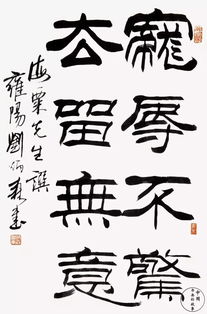 寵辱不驚
去留無意
海粟先生譔
雍陽劉炳森書
中國